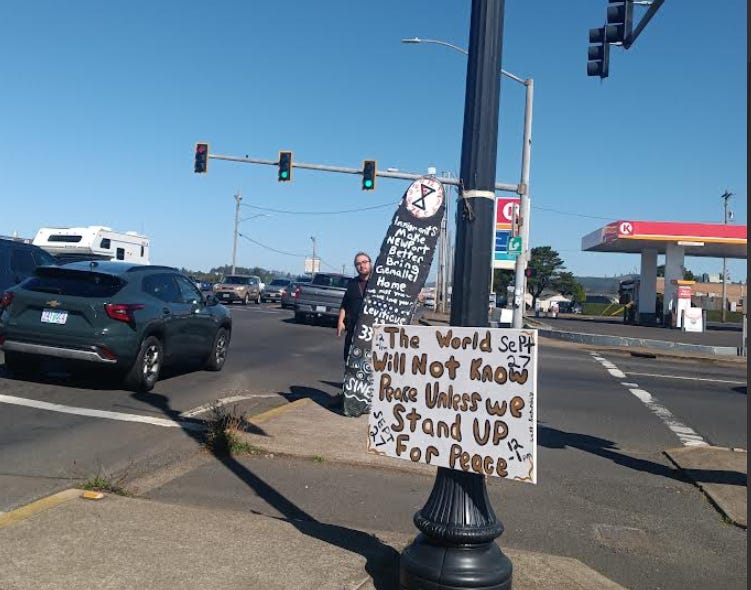 Imigrants
Make
NEWPort
Better
Bring
Genallel
Home
Leviticus
33
SINE
The World
Sept
27
Will Not Know
Peace Unless we
Stand UP
For Peace
SEPT
27
12
K